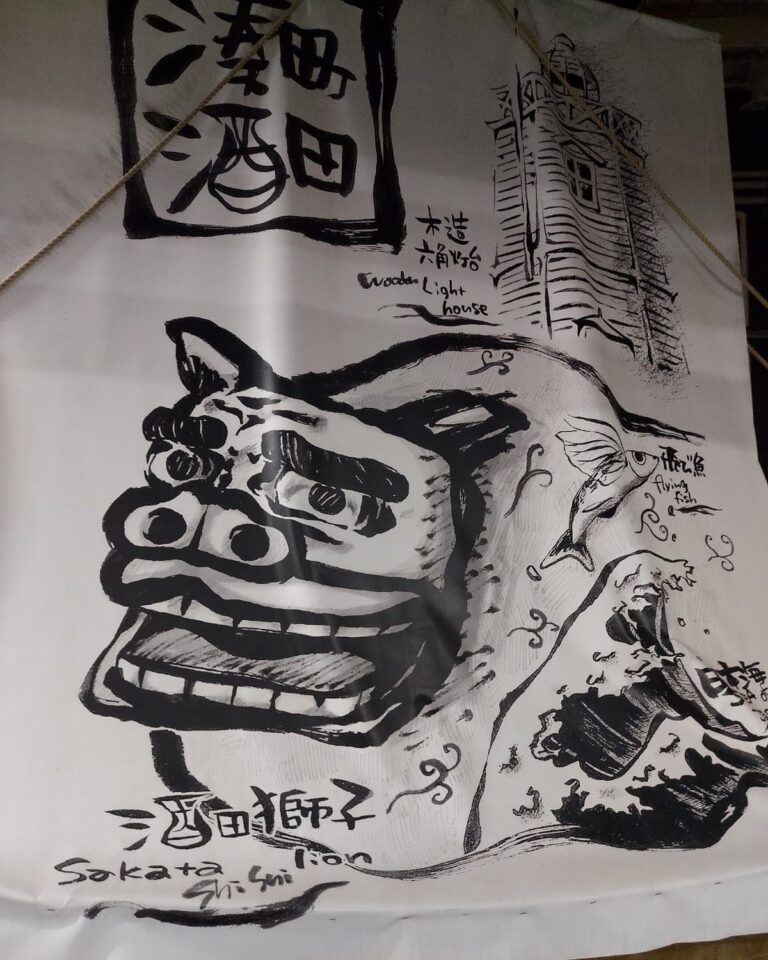 湊町
酒田
木造
六角灯台
Wooden Light
house
飛び魚
flying
fish
酒田獅子
Sakata Shi Shi lion